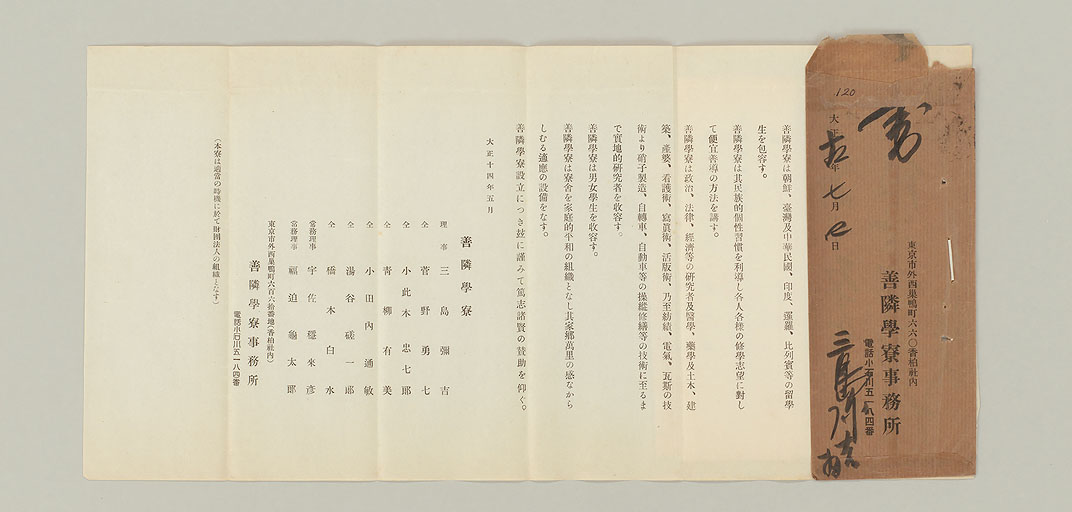 120
大正 年七月 日
東京市外西巣鴨町六六〇香柏社内
善隣學寮事務所
電話小石川五一八四番
善隣學寮は朝鮮、臺灣及中華民國、印度、暹羅、比列賓等の留學
生を包容す。
善隣學寮は其民族的個性習慣を利導し各人各樣の修學志望に對し
て便宜善導の方法を講す。
善隣學寮は政治、法律、經濟等の研究者及醫學、藥學及土木、建
築、產婆、看護術、寫眞術、活版術、乃至紡績、電氣、瓦斯の技
術より硝子製造、自轉車、自動車等の操縱修繕等の技術に至るま
で實地的研究者を收容す。
善隣學寮は男女學生を收容す。
善隣學寮は寮舍を家庭的平和の組織となし其家鄕萬里の感なから
しむる適應の設備をなす。
善隣學寮設立につき玆に謹みて篤志諸賢の賛助を仰ぐ。
大正十四年五月
善隣學寮
理事 三島彌吉
仝 菅野勇七
仝 小此木忠七郎
仝 靑柳有美
仝 小田内通敏
仝 湯谷磋一郎
仝 橋本白水
常務理事 宇佐穩來彥
常務理事 福迫龜太郎
東京市外西巣鴨町六百六拾番地(香柏社内)
善隣學寮事務所
電話小石川五一八四番
(本寮は適當の時機に於て財團法人の組織となす)